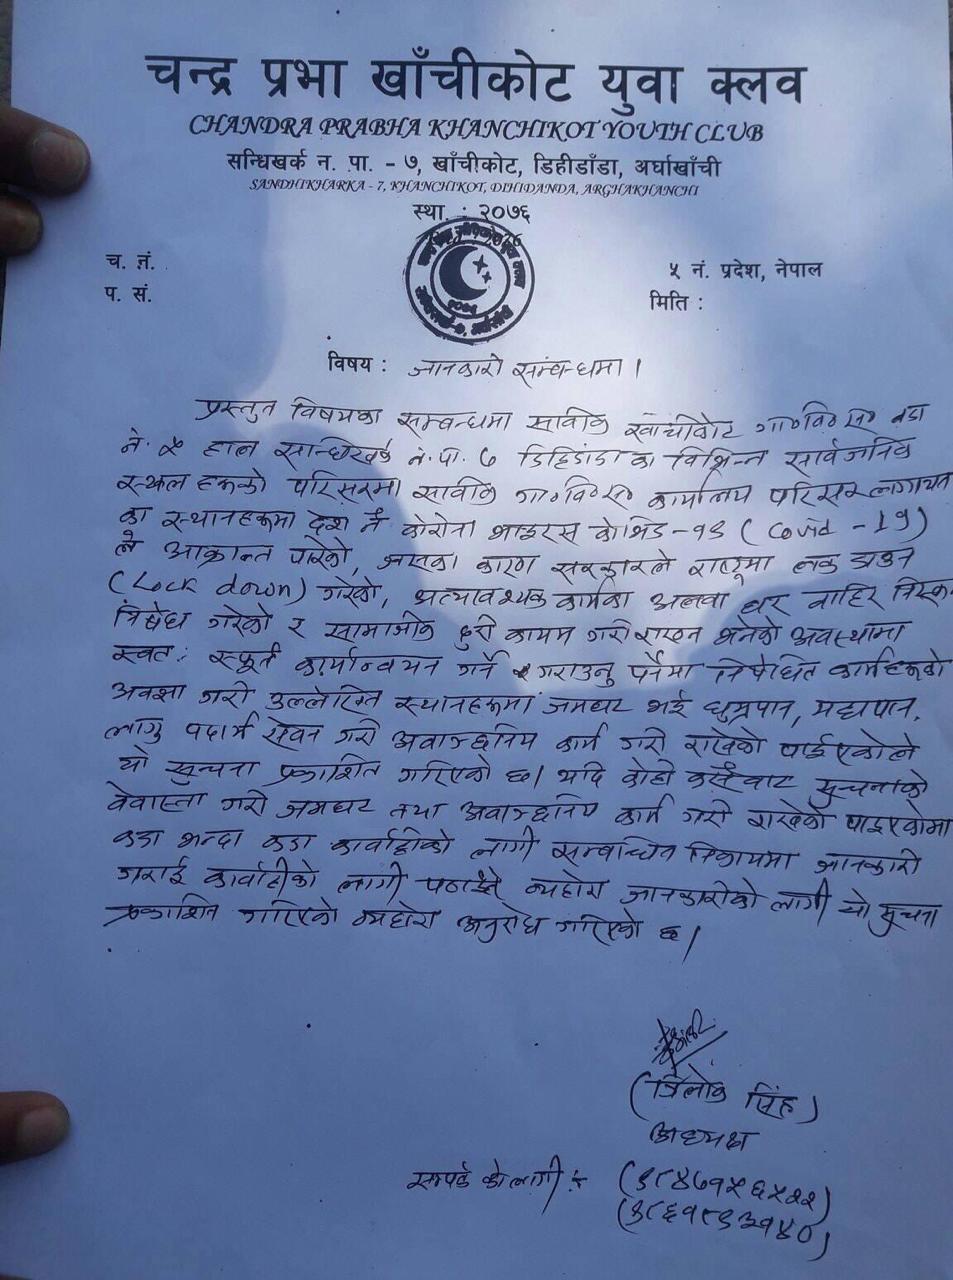 चन्द्र प्रभा खाँचीकोट युवा क्लव
CHANDRA PRABHA KHANCHIKOT YOUTH CLUB
सन्धिखर्क न. पा. - ७, खाँचीकोट, डिहीडाँडा, अर्घाखाँची
SANDHIKHARKA - 7, KHANCHIKOT, DIHIDANDA, ARGHAKHANCHI
स्था. : २०७६
च. नं.
५ नं. प्रदेश, नेपाल
प. सं.
मिति :
विषय : जानकारी सम्बन्धमा ।
प्रस्तुत विषयका सम्बन्धमा साविक खाँचीकोट गा॰वि॰स॰ वडा
नं. ५ हाल सन्धिखर्क न.पा. ७ डिहिडाँडाका विभिन्न सार्वजनिक
स्थल हरूको परिसरमा साविक गा॰वि॰स॰ कार्यालय परिसर लगायत
का स्थानहरूमा देश नै कोरोना भाइरस कोभिड-१९ (Covid - 19)
ले आक्रान्त पारेको, जसका कारण सरकारले राष्ट्रमा लक डाउन
(Lock down) गरेको, अत्यावश्यक कार्यका अलवा घर बाहिर निस्कन
निषेध गरेको र सामाजीक दुरी कायम गरी राख्न भनेको अवस्थामा
स्वत: स्फूर्त कार्यान्वयन गर्ने र गराउनु पर्नेमा निषेधित कार्यहरूको
अवज्ञा गरी उल्लेखित स्थानहरूमा जमघट भई धुम्रपान, मद्यपान,
लागु पदार्थ सेवन गरी अवाञ्छनिय कार्य गरी राखेको पाईएकोले
यो सुचना प्रकाशित गरिएको छ। यदि कोही कसैबाट सुचनाको
वेवास्ता गरी जमघट तथा अवाञ्छनिय कार्य गरी राखेको पाइएकोमा
कडा भन्दा कडा कार्वाहीको लागी सम्बन्धित निकायमा जानकारी
गराई कार्वाहीको लागी पठाइने व्यहोरा जानकारीको लागी यो सुचना
प्रकाशित गरिएको व्यहोरा अनुरोध गरिएको छ।
(त्रिलोक सिंह)
अध्यक्ष
सम्पर्क को लागी : (९८४७१५६५२२)
(९८६१८९३१४०)